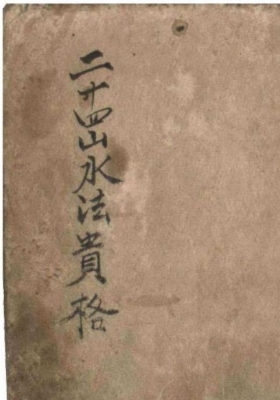 二十四山水法貴格